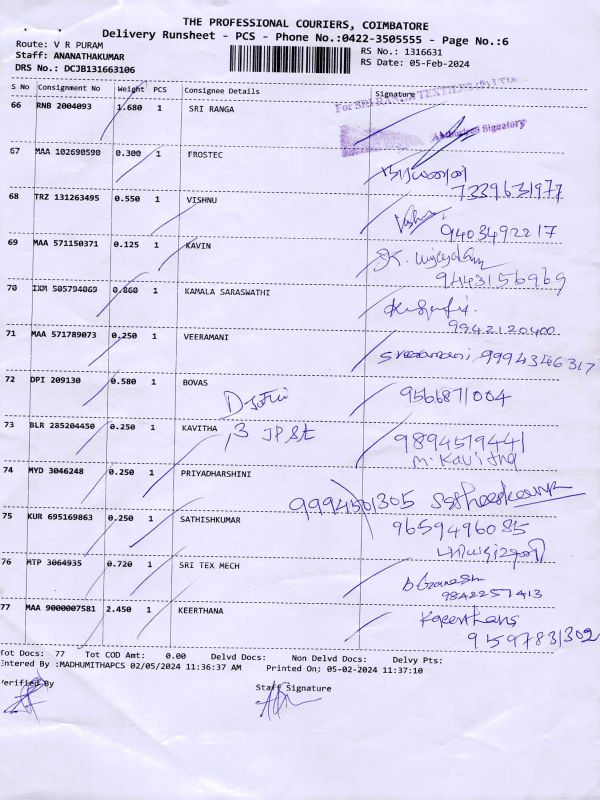 THE PROFESSIONAL COURIERS, COIMBATORE
Delivery Runsheet - PCS - Phone No.:0422-3505555 - Page No.:6
Route: V R PURAM
Staff: ANANATHAKUMAR
DRS No.: DCJB131663106
RS No.: 1316631
RS Date: 05-Feb-2024
S No Consignment No Weight PCS Consignee Details Signature
For SRI RANGA TEXTILES (P) LTD
66 RNB 2004093 1.680 1 SRI RANGA
Authorised Signatory
67 MAA 102690590 0.300 1 FROSTEC
7339631977
68 TRZ 131263495 0.550 1 VISHNU
9403492217
69 MAA 571150371 0.125 1 KAVIN
9443156969
70 IXM 505794069 0.860 1 KAMALA SARASWATHI
9942120400
71 MAA 571789073 0.250 1 VEERAMANI
9994346317
72 DPI 209130 0.580 1 BOVAS 9566871004
73 BLR 285204450 0.250 1 KAVITHA 3 JP St 9894579441
M. Kavitha
74 MYD 3046248 0.250 1 PRIYADHARSHINI
9994501305
75 KUR 695169863 0.250 1 SATHISHKUMAR 9659496085
76 MTP 3064935 0.720 1 SRI TEX MECH
9842257413
77 MAA 9000007581 2.450 1 KEERTHANA Keerthana
9597831302
Tot Docs: 77 Tot COD Amt: 0.00 Delvd Docs: Non Delvd Docs: Delvy Pts:
Entered By :MADHUMITHAPCS 02/05/2024 11:36:37 AM Printed On; 05-02-2024 11:37:10
Verified By Staff Signature